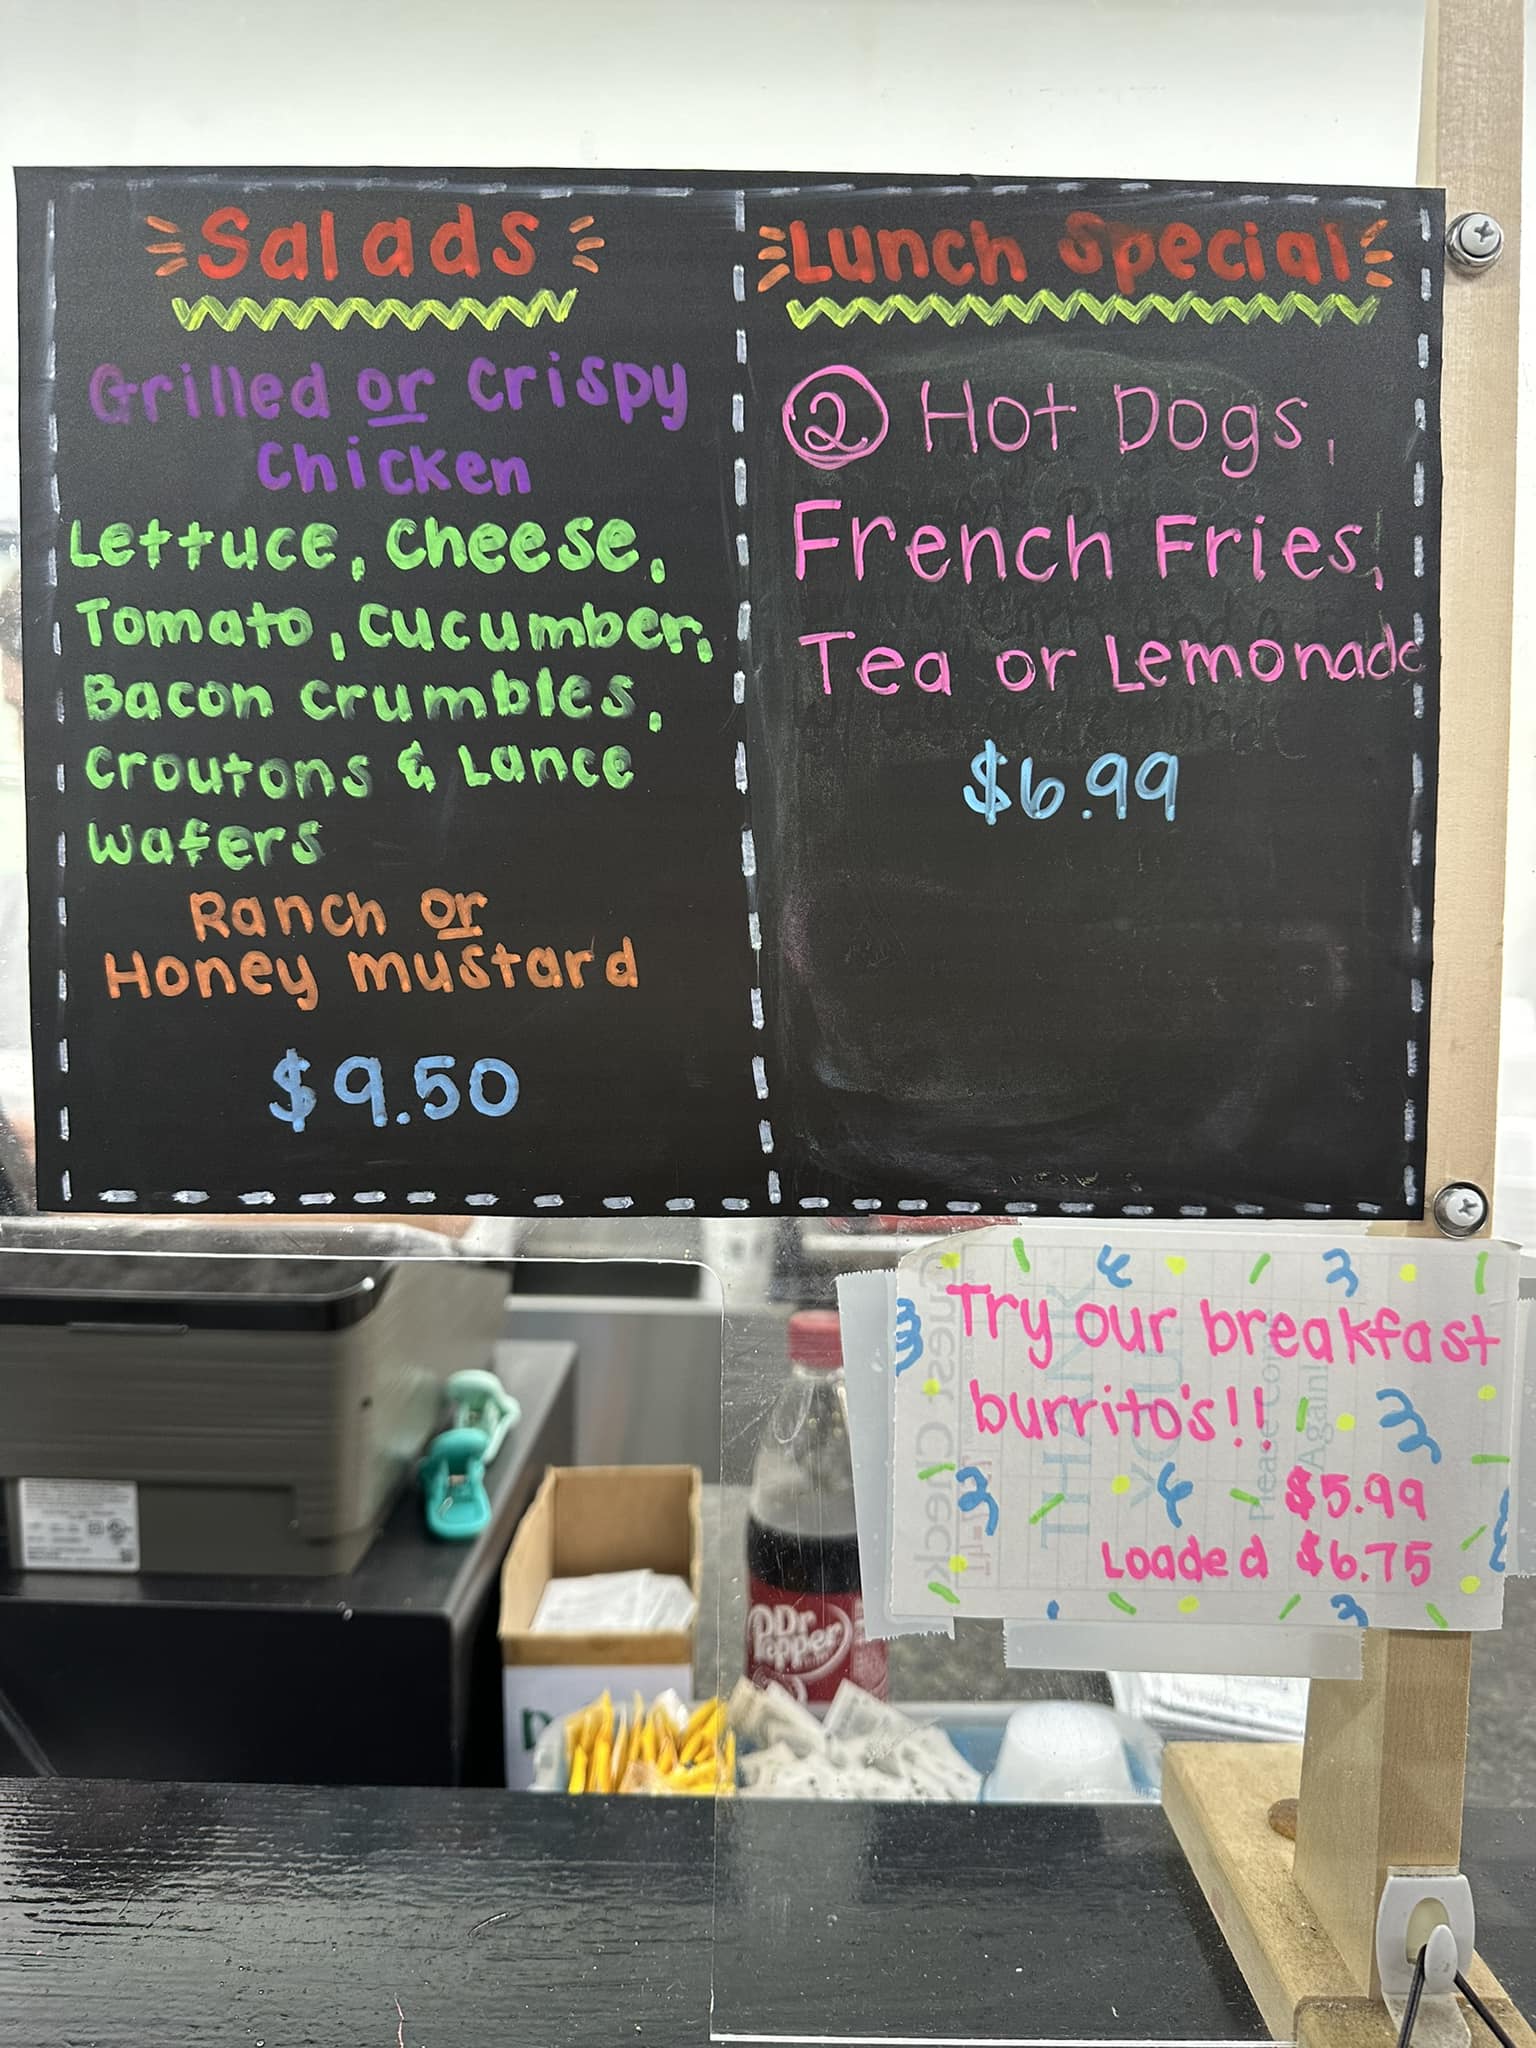 Salads
Grilled or Crispy
Chicken
Lettuce, Cheese,
Tomato, Cucumber,
Bacon crumbles,
Croutons & Lance
Wafers
Ranch or
Honey mustard
$9.50
Lunch Special
2 Hot Dogs,
French Fries,
Tea or Lemonade
$6.99
Try our breakfast
burrito's!!
$5.99
Loaded $6.75
THANK
YOU
Please Come
Again!
Guest Check
Dr
Pepper